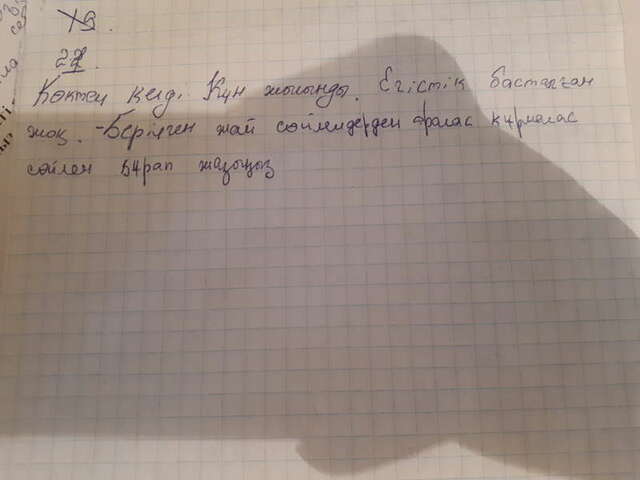 19.
22.
Көктем келді. Күн жылынды. Егістік басталған
жоқ. - Берілген жай сөйлемдерден аралас құрмалас
сөйлем құрап жазыңыз